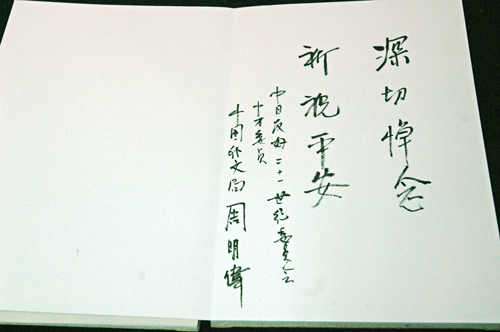 深切悼念
祈祝平安
中日友好二十一世纪委员会
中方委员
中国外文局 周明伟